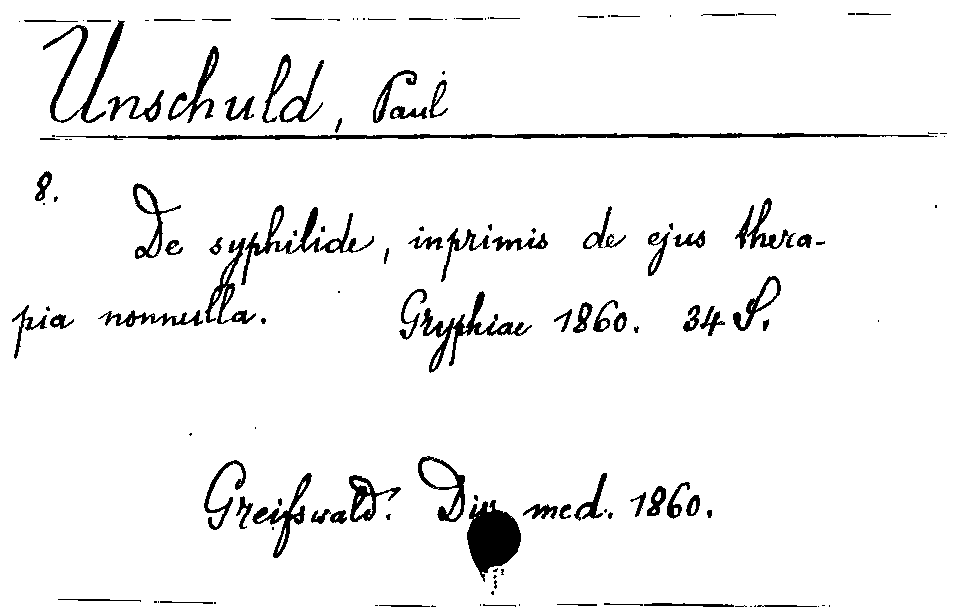 Unschuld, Paul
8.
De syphilide, inprimis de ejus thera-
pia nonnulla. Gryphiae 1860. 34 S.
Greifswald. Diss med. 1860.